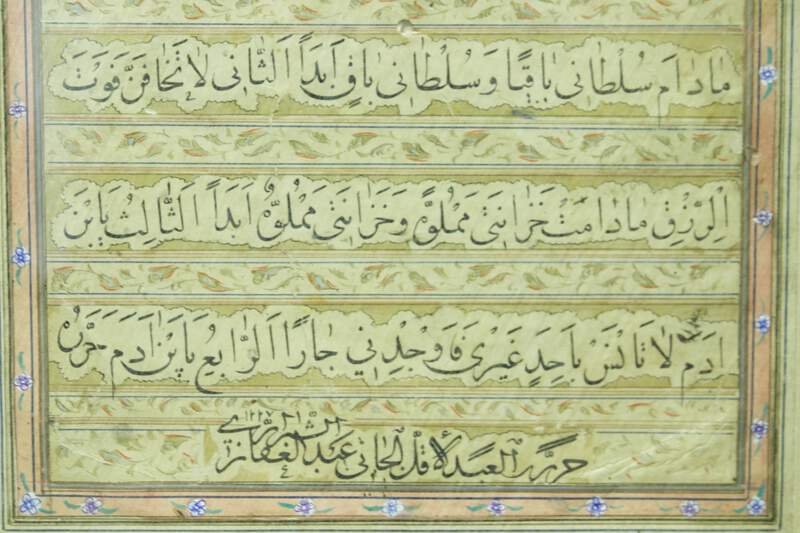 مَادَامَ سُلْطَانِی بَاقِیًا وَسُلْطَانِی بَاقٍ اَبَدًا اَلثَّانِی لَا تَخَافَنَّ فَوْتَ
اَلرِّزْقِ مَادَامَتْ خَزَائِنَتِی مَمْلُوَّةً وَخَزَائِنَتِی مَمْلُوَّةٌ اَبَدًا اَلثَّالِثُ یَابْنَ
اٰدَمَ لَا تَاْنَسْ بِاَحَدٍ غَیْرِی فَاوَجْدِنِی جَارًا اَلرَّابِعُ یَابْنَ اٰدَمَ
حرره العبد الاقل الجانی عبد الغفار الشیرازی